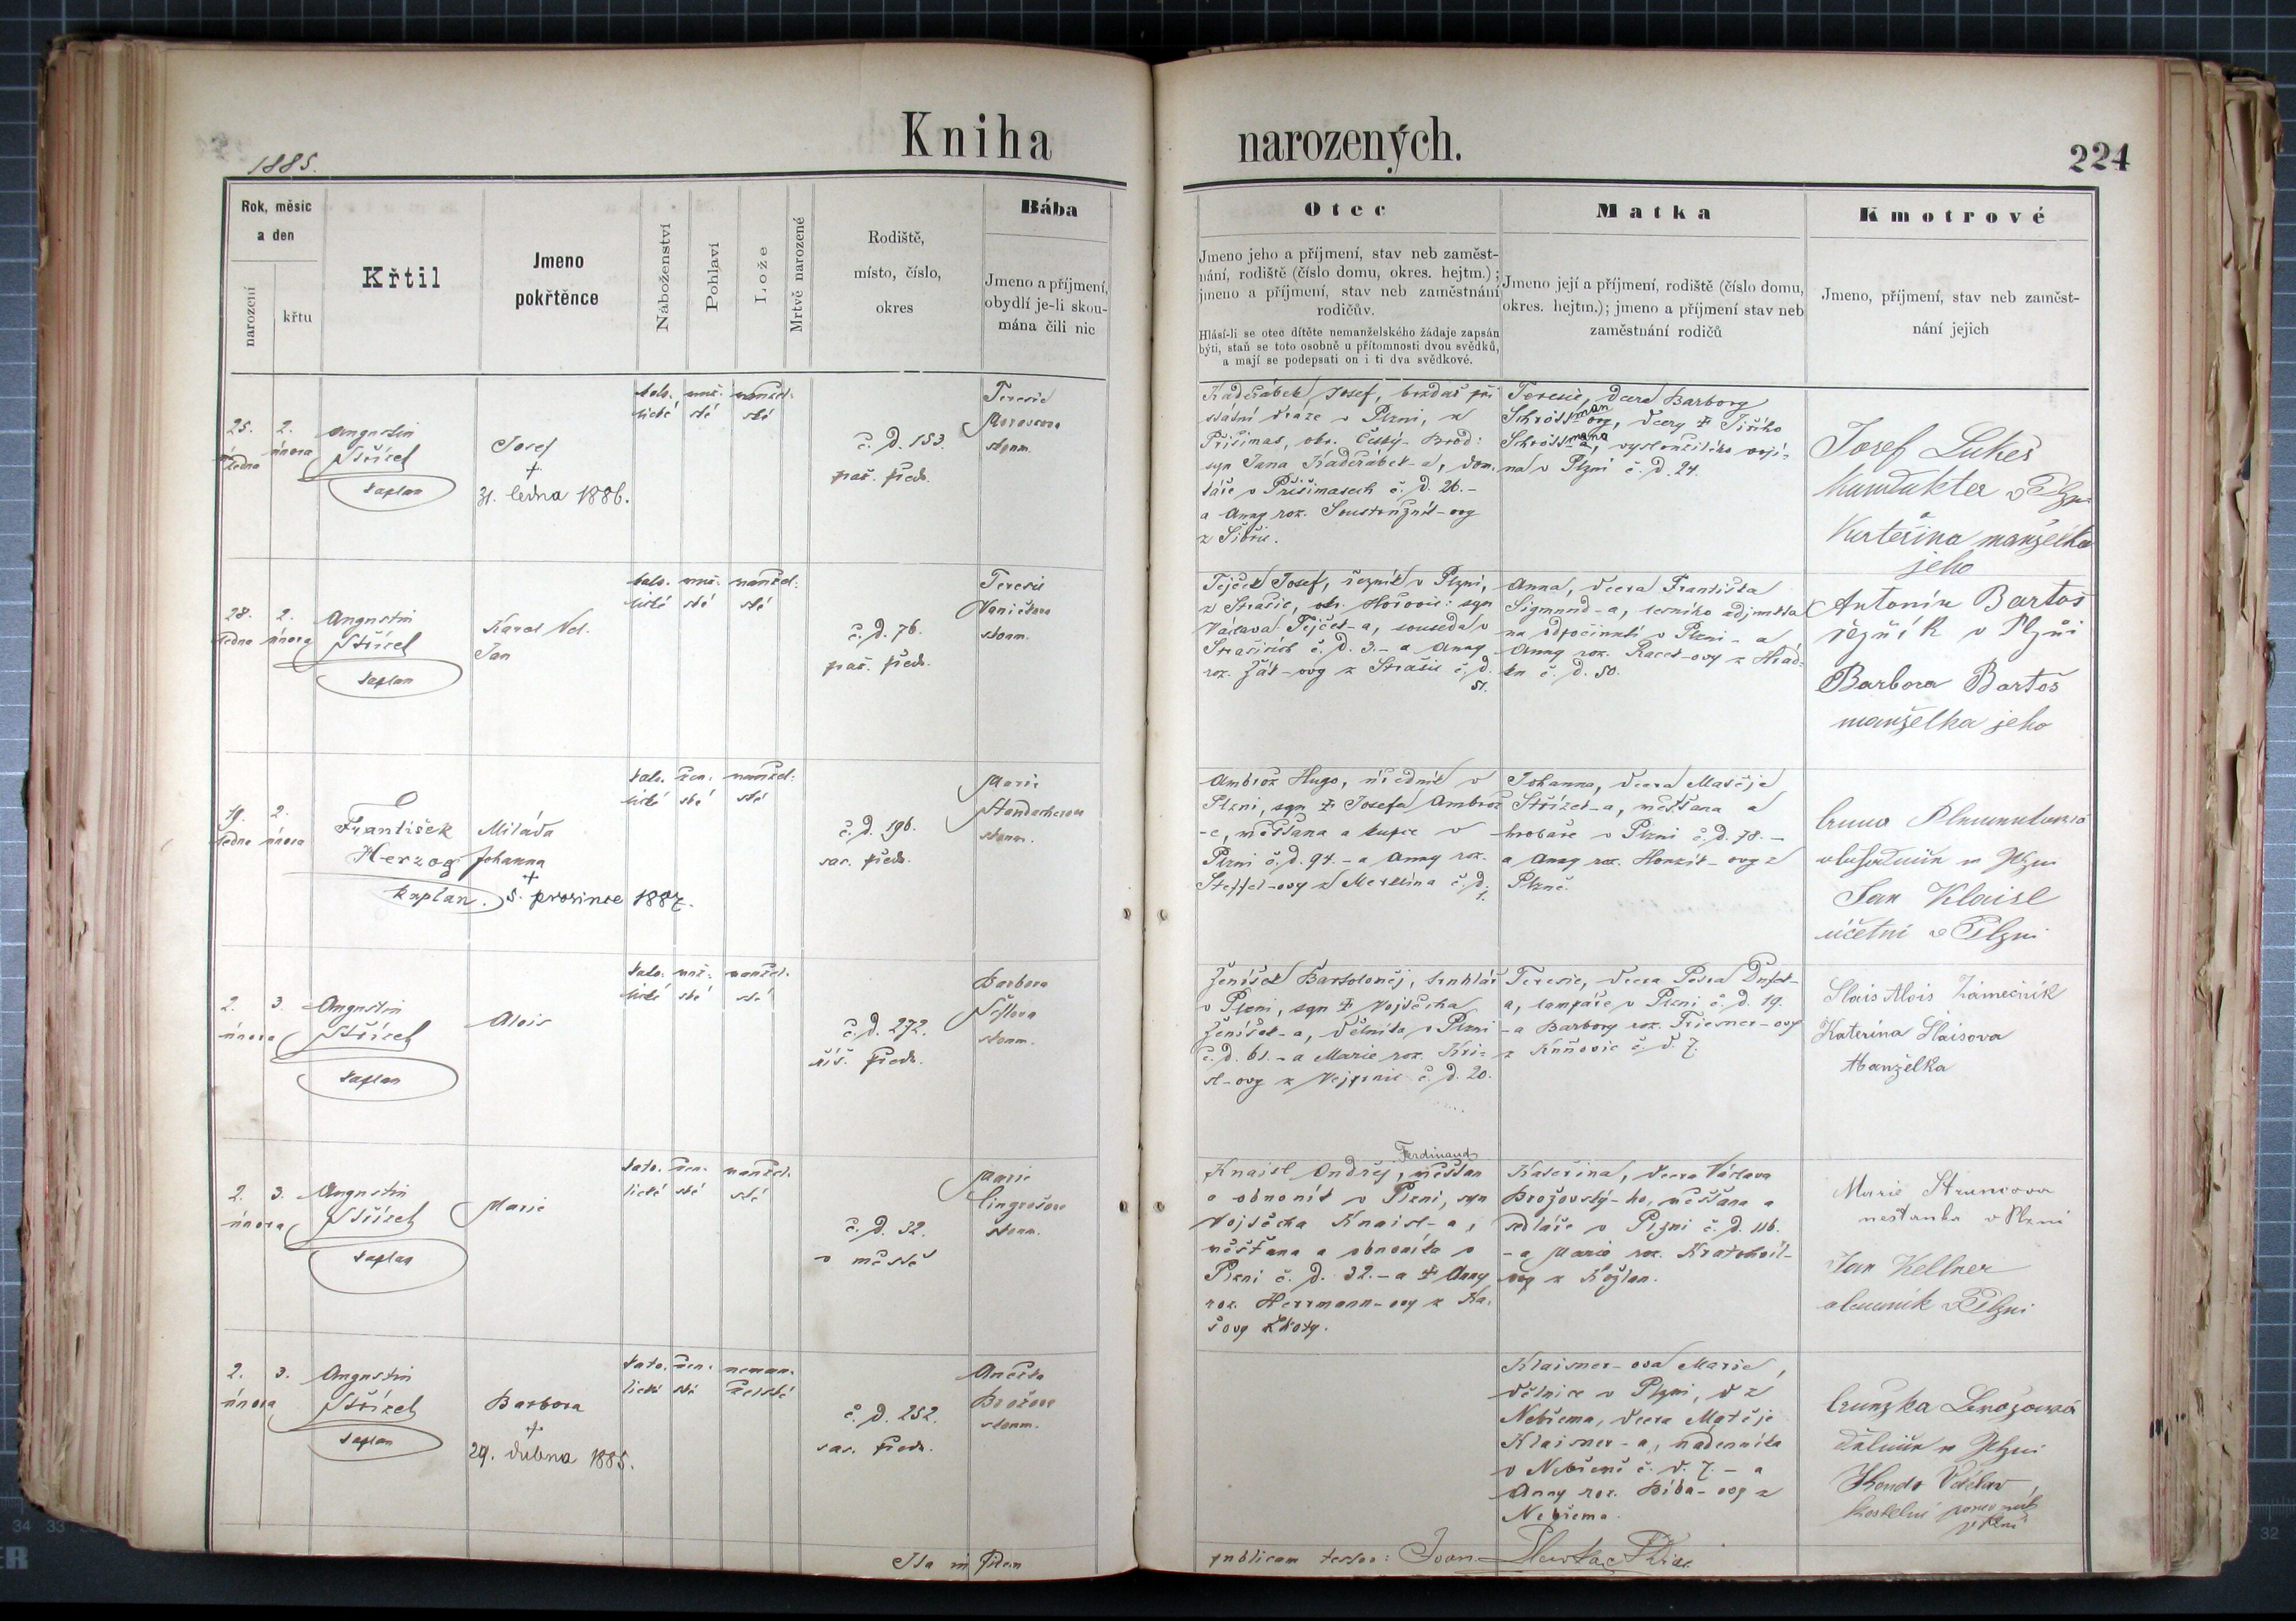 Kniha narozených.
1885.
224
Rok, měsíc
a den
narození
křtu
Křtil
Jmeno
pokřtěnce
Náboženství
Pohlaví
Lože
Mrtvě narozené
Rodiště,
místo, číslo,
okres
Bába
Jmeno a příjmení,
obydlí je-li skou-
mána čili nic
Otec
Jmeno jeho a příjmení, stav neb zaměst-
nání, rodiště (číslo domu, okres. hejtm.);
jmeno a příjmení, stav neb zaměstnání
rodičův.
Hlásí-li se otec dítěte nemanželského žádaje zapsán
býti, staň se toto osobně u přítomnosti dvou svědků,
a mají se podepsati on i ti dva svědkové.
Matka
Jmeno její a příjmení, rodiště (číslo domu,
okres. hejtm.); jmeno a příjmení stav neb
zaměstnání rodičů
Kmotrové
Jmeno, příjmení, stav neb zaměst-
nání jejich
25.
ledna
2.
února
Augustin
Střízek
kaplan
Josef
+
31. ledna 1886.
kato-
lické
muž-
ské
manžel-
ské
č. d. 153.
praž. předm.
Teresie
zkoum.
Kadeřábek Josef, brzdař při
státní dráze v Plzni, z
Přišimas, okr. Český-Brod:
syn Jana Kadeřábek-a, dom-
káře v Přišimasech č. d. 26.-
a Anny roz.
z Sibřic.
Teresie, dcera Barbory
man
Schröss-ovy, dcery † Jiřího
mana
Schröss-a, vysloužilého voji-
na v Plzni č. d. 24.
Josef Lukeš
kondukter v Plzni
a
Kateřina manželka
jeho
28.
ledna
2.
února
Augustin
Střízek
kaplan
Karel Vel.
Jan
kato-
lické
muž-
ské
manžel-
ské
č. d. 76.
praž. předm.
Teresie
Vaníčkova
zkoum.
Tejček Josef, řezník v Plzni,
z Strašic, okr. Hořovic: syn
Václava Tejček-a, souseda v
Strašicích č. d. 3.- a Anny
roz. Žák-ovy z Strašic č. d.
51.
Anna, dcera Františka
Sigmund-a, lesního adjunkta
na odpočinutí v Plzni - a
Anny roz. Racek-ovy z Hrád-
ku č. d. 50.
Antonín Bartoš
řezník v Plzni
Barbora Bartoš
manželka jeho
19.
ledna
2.
února
František
Herzog
kaplan.
Miláda
Johanna
+
5. prosince 1887.
kato-
lické
žen-
ské
manžel-
ské
č. d. 196.
sas. předm.
Marie
zkoum.
Ambrož Hugo, úředník v
Plzni, syn † Josefa Ambrož
-e, měšťana a kupce v
Plzni č. d. 94. - a Anny roz.
Steffel-ovy z Merklína č. d.
1.
Johanna, dcera Matěje
Střízek-a, měšťana a
hrobaře v Plzni č. d. 78. -
a Anny roz. Honzík-ovy z
Plzně.
v Plzni
Jan Klaisl
účetní v Plzni
2.
února
3.
Augustin
Střízek
kaplan
Alois
kato-
lické
muž-
ské
manžel-
ské
č. d. 272.
říš. předm.
Barbora
zkoum.
Ženíšek Bartoloměj, truhlář
v Plzni, syn † Vojtěcha
Ženíšek-a, dělníka v Plzni
č. d. 61. - a Marie roz. Kri-
st-ovy z Vejprnic č. d. 20.
Teresie, dcera Petra Dušek-
a, lampáře v Plzni č. d. 19.
- a Barbory roz. Triesner-ovy
z č. d. 7.
Slais Alois Zámečník
Kateřina Slaisova
Manželka
2.
února
3.
Augustin
Střízek
kaplan
Marie
kato-
lické
žen-
ské
manžel-
ské
č. d. 32.
v městě
Marie
zkoum.
Ferdinand
Knaisl Ondřej, měšťan
a obuvník v Plzni, syn
Vojtěcha Knaisl-a,
měšťana a obuvníka v
Plzni č. d. 32. - a † Anny
roz. Herrmann-ovy z Ka-
šovy Lhoty.
Kateřina, dcera Václava
Brožovský-ho, měšťana a
sedláře v Plzni č. d. 116.
- a Marie roz. Kratochvíl-
ovy z Kožlan.
Marie Struncova
mešťanka v Plzni
Jan Kellner
obuvník v Plzni
2.
února
3.
Augustin
Střízek
kaplan
Barbora
+
29. dubna 1885.
kato-
lické
žen-
ské
neman-
želské
č. d. 252.
sas. předm.
Anežka
Brožova
zkoum.
Klaisner-ova Marie,
dělnice v Plzni, z
Nebřema, dcera Matěje
Klaisner-a, nádenníka
v Nebřemi č. d. 7. - a
Anny roz. Bíba-ovy z
Nebřema.
Anežka
v Plzni
Václav,
kostelní pomocník
v Plzni
Ita in fidem publicam testor: Joan.